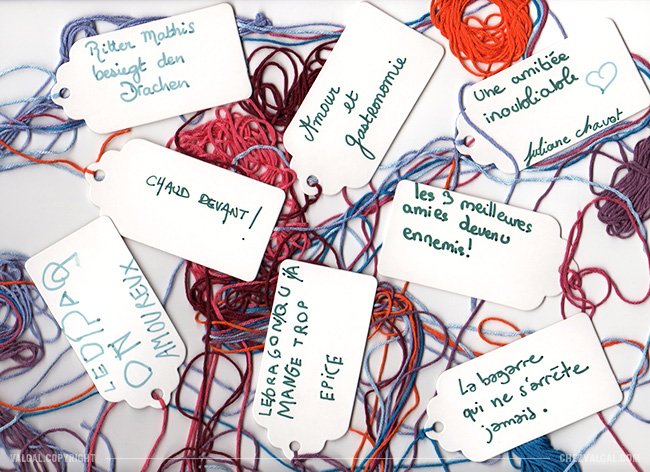 Ritter Mathis
besiegt den
Drachen
Amour
et
gastronomie
Une amitiée
inoubliable
juliane chavot
CHAUD DEVANT!
les 3 meilleures
amies devenu
ennemis!
LEDRAQ
ON
AMOUREUX
LEDRAGONQUIA
MANGE TROP
EPICE
La bagarre
qui ne s'arrête
jamais.
VALGAL.COPYRIGHT
CHEZVALGAL.COM